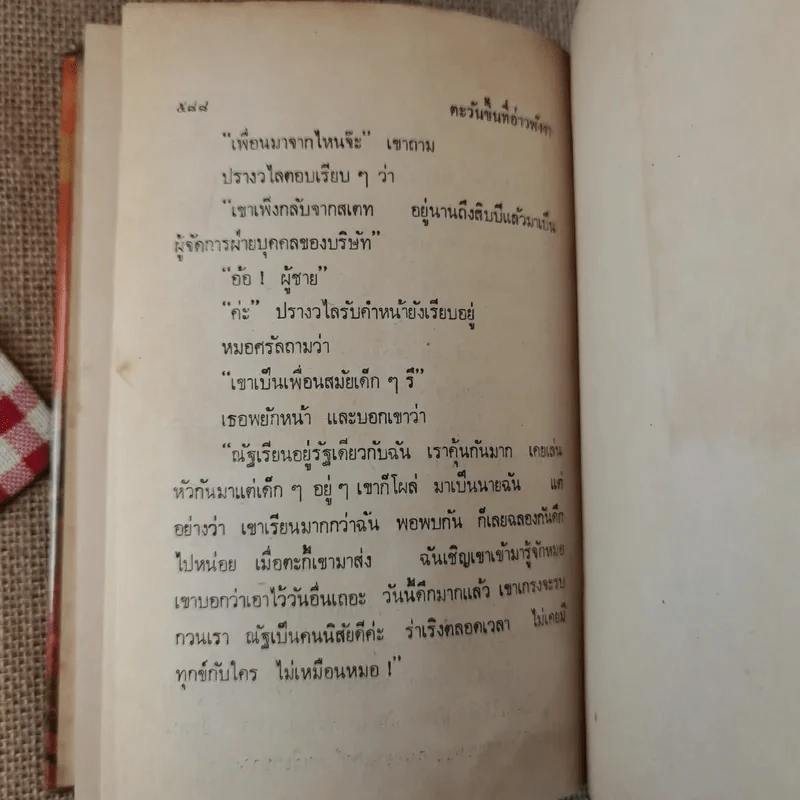 ๕๘๘ ตะวันขึ้นที่อ่าวพังงา
“เพื่อนมาจากไหนจ๊ะ” เขาถาม
ปรางวไลตอบเรียบ ๆ ว่า
“เขาเพิ่งกลับจากสเตท อยู่นานถึงสิบปีแล้วมาเป็น
ผู้จัดการฝ่ายบุคคลของบริษัท”
“อ้อ ! ผู้ชาย”
“ค่ะ” ปรางวไลรับคำหน้ายังเรียบอยู่
หมอศรัลถามว่า
“เขาเป็นเพื่อนสมัยเด็ก ๆ รึ”
เธอพยักหน้า และบอกเขาว่า
“ณัฐเรียนอยู่รัฐเดียวกับฉัน เราคุ้นกันมาก เคยเล่น
หัวกันมาแต่เด็ก ๆ อยู่ ๆ เขาก็โผล่ มาเป็นนายฉัน แต่
อย่างว่า เขาเรียนมากกว่าฉัน พอพบกัน ก็เลยฉลองกันดึก
ไปหน่อย เมื่อตะกี้เขามาส่ง ฉันเชิญเขาเข้ามารู้จักหมอ
เขาบอกว่าเอาไว้วันอื่นเถอะ วันนี้ดึกมากแล้ว เขาเกรงจะรบ
กวนเรา ณัฐเป็นคนนิสัยดีค่ะ ร่าเริงตลอดเวลา ไม่เคยมี
ทุกข์กับใคร ไม่เหมือนหมอ !”